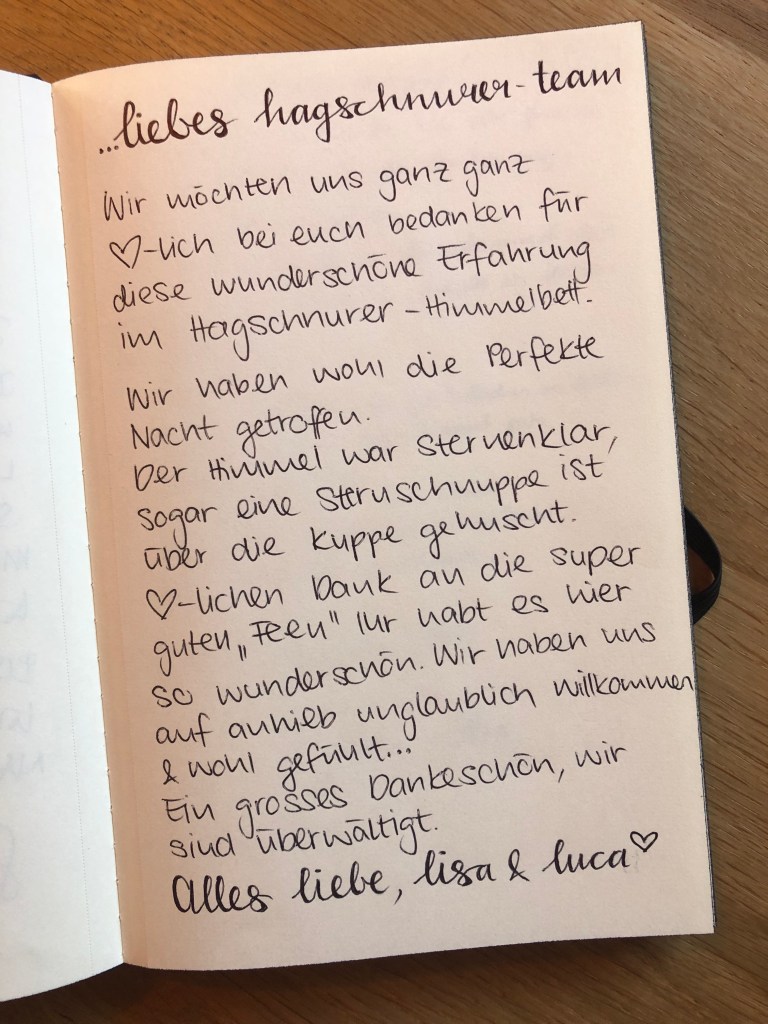 ...liebes hagschnurer-team
Wir möchten uns ganz ganz
♡-lich bei euch bedanken für
diese wunderschöne Erfahrung
im Hagschnurer-Himmelbett.
Wir haben wohl die Perfekte
Nacht getroffen.
Der Himmel war sternenklar,
sogar eine Sternschnuppe ist
über die Kuppe gehuscht.
♡-lichen Dank an die super
guten „Feen" Ihr habt es hier
so wunderschön. Wir haben uns
auf anhieb unglaublich willkommen
& wohl gefühlt...
Ein grosses Dankeschön, wir
sind überwältigt.
Alles liebe, lisa & luca♡